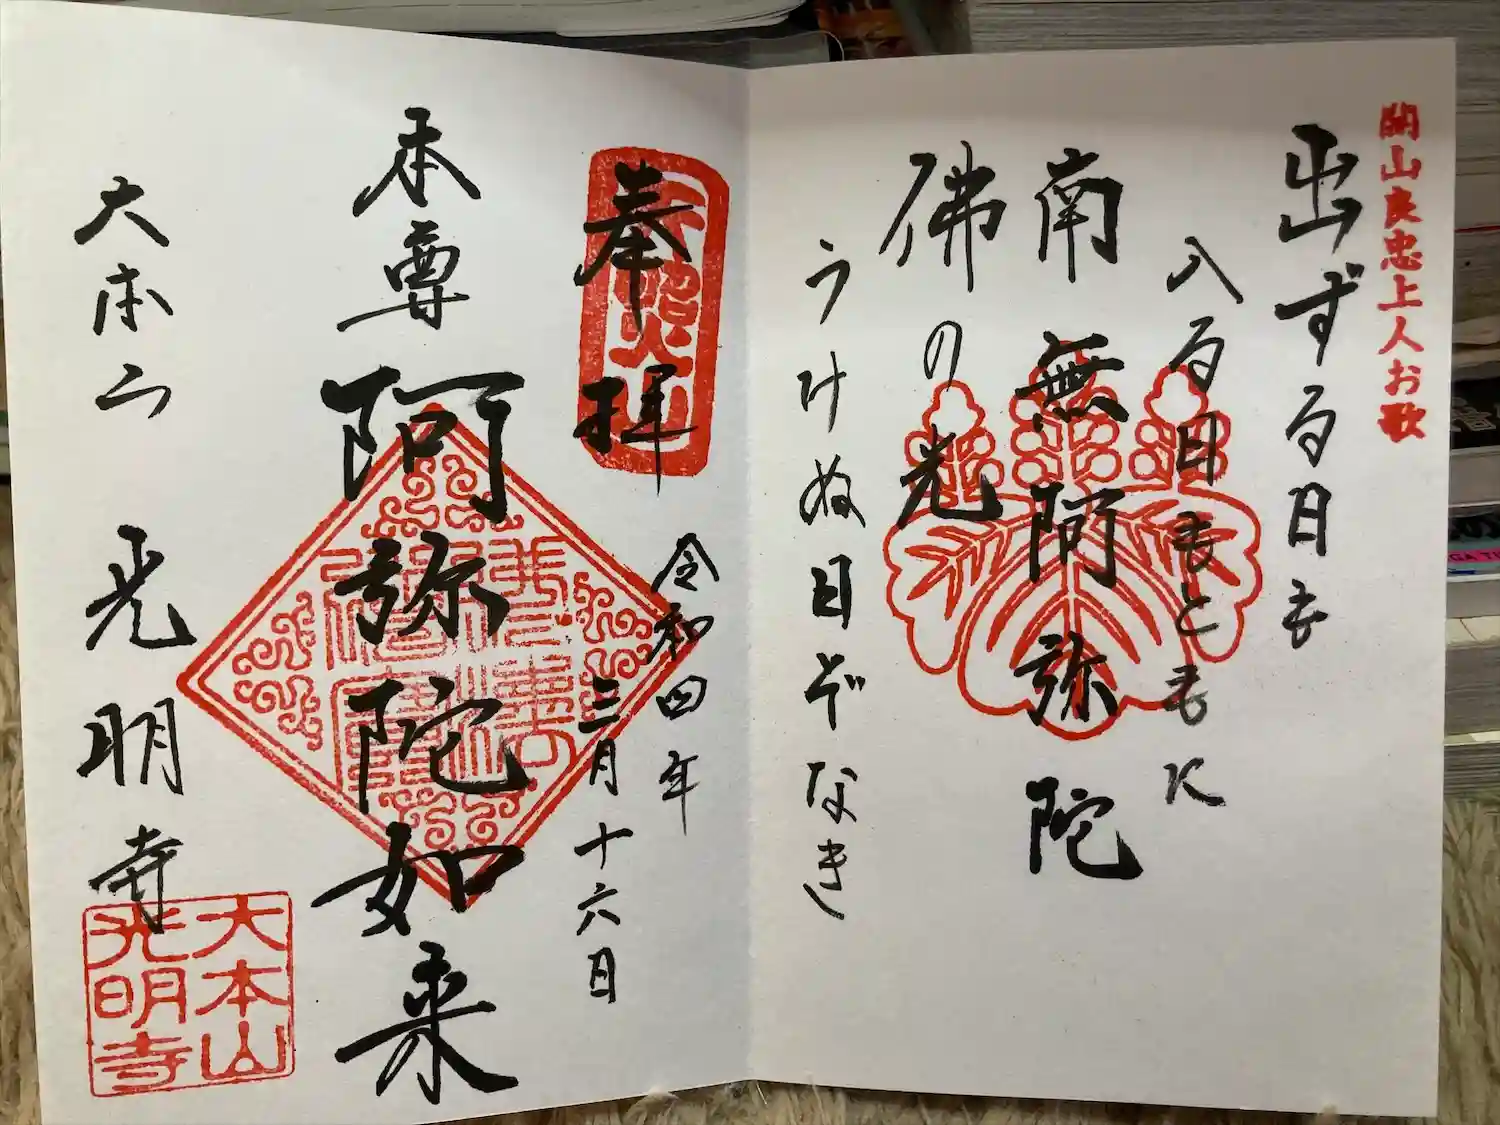 開山良忠上人お歌
出ずる日も
入る月もともに
南無阿弥陀
佛の光
うけぬ日ぞなき
奉拝
令和四年
三月十六日
本尊
阿弥陀如来
大本山
光明寺
大本山
光明寺